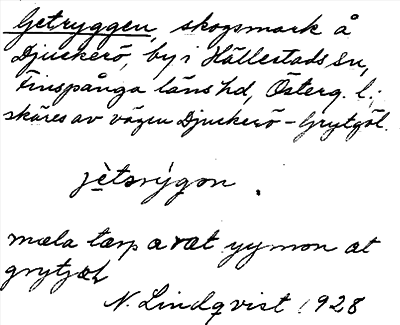 Getryggen, skogsmark å
Djuckerö, by i Hällestads sn,
Finspånga läns hd, Österg. l.;
skäres av vägen Djuckerö – Grytgöl.
jètsrýgon.
mæla tærp a væt yymon at
grytjæl
N. Lindqvist 1928